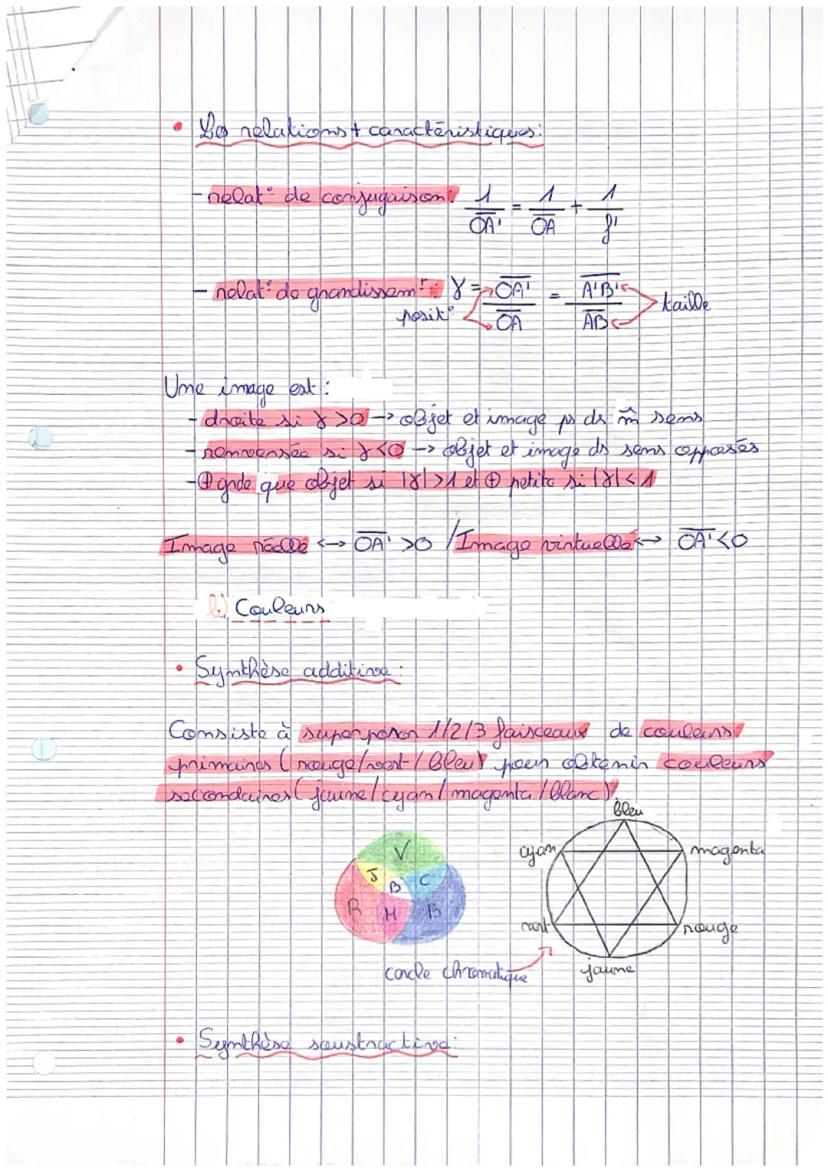 • Les relations + caractéristiques :
- relat° de conjugaison : 1/OA' = 1/OA + 1/f'
- relat° de grandissemt : γ = OA'/OA = A'B'/AB taille
posit°
Une image est :
- droite si γ >0 → objet et image ds m̂ sens
- renversée si γ <0 → objet et image ds sens opposés
- ⊕ grde que objet si |γ| >1 et ⊕ petite si |γ| < 1
Image réelle ↔ OA' >0 / Image virtuelle ↔ OA' <0
b.) Couleurs
• Synthèse additive :
Consiste à superposer 1/2/3 faisceaux de couleurs
primaires (rouge/vert/bleu) pour obtenir couleurs
secondaires (jaune/cyan/magenta/blanc)
bleu
cyan magenta
V
J B C
R M B
vert rouge
cercle chromatique jaune
• Synthèse soustractive :